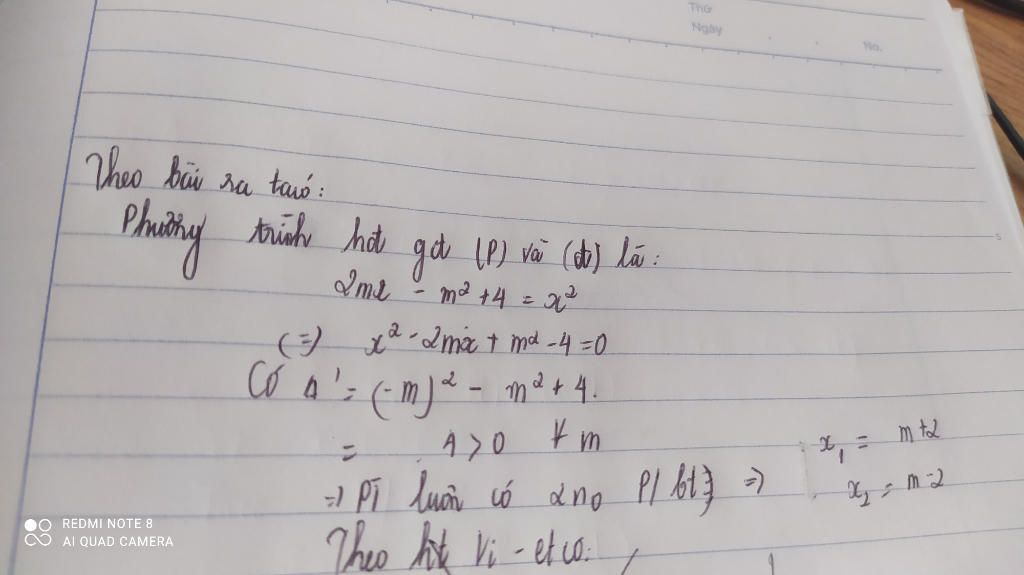 Thứ
Ngày
No.
Theo bài ra ta có:
Phương trình hđ gđ (P) và (d) là:
2mx - m² + 4 = x²
(=) x² - 2mx + m² - 4 = 0
Có Δ' = (-m)² - m² + 4.
= 4 > 0 ∀ m
=) PT luôn có 2 n₀ P/bt =) x₁ = m+2
x₂ = m-2
Theo ht Vi-et có:
REDMI NOTE 8
AI QUAD CAMERA